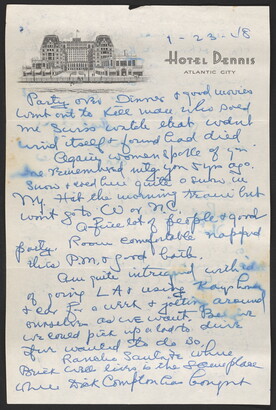 1-23-48
HOTEL DENNIS
ATLANTIC CITY
Party over Dinner & good movies
Went out to kill man who sold
me Swiss watch that wdnt
wind itself & found had died
Again women spoke of yr
remembered mtg you 5 yrs ago.
Snow & cold here quite a snow in
NY. Hit the morning train but
wont go to or NC.
A fine lot of people & good
party. Room comfortable napped
this P.M. & good bath.
Am quite intrigued with idea
of going LA & using Kay house
& car for a week & jetting around
ourselves as we want. Believe
we could pick up a lad to drive
if we wanted to do so.
Rancho Santa Fe where
Buck lives is the same place
where Dick Compton has bought